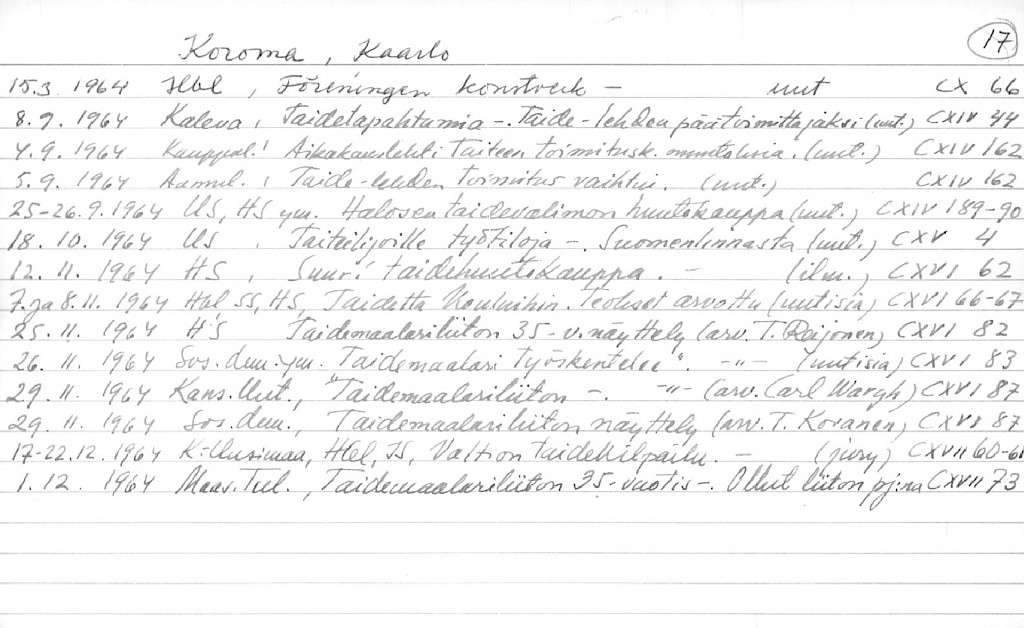 17
Koroma, Kaarlo
15.3. 1964 Hbl, Föreningen konstverk – uut CX 66
8.9. 1964 Kaleva, Taidetapahtumia –. Taide-lehden päätoimittajaksi (uut.) CXIV 44
4.9. 1964 Kauppal.! Aikakauslehti Taiteen toimitusk. muutoksia. (uut.) CXIV 162
5.9. 1964 Aamul., Taide-lehden toimitus vaihtui. (uut.) CXIV 162
25-26.9.1964 US, HS ym. Halosen taidevalimon huutokauppa (uut.) CXIV 189-90
18. 10. 1964 US, Taiteilijoille työtiloja –. Suomenlinnasta (uut.) CXV 4
12. 11. 1964 HS, Suuri taidehuutokauppa. – (ilm.) CXVI 62
7. ja 8. 11. 1964 Hbl, SS, HS, Taidetta kouluihin. Teokset arvottu (uutisia) CXVI 66-67
25. 11. 1964 HS Taidemaalariliiton 35-v. näyttely (arv. T. Reijonen) CXVI 82
26. 11. 1964 Sos.dem. ym. Taidemaalari työskentelee". -"- (uutisia) CXVI 83
29. 11. 1964 Kans. Uut., "Taidemaalariliiton –. -"- (arv. Carl Wargh) CXVI 87
29. 11. 1964 Sos. dem., Taidemaalariliiton näyttely (arv. T. Kovanen) CXVI 87
17-22.12. 1964 K-Uusimaa, Hbl, IS, Valtion taidekilpailu. – (jury) CXVII 60-61
1. 12. 1964 Maas. Tul., Taidemaalariliiton 35-vuotis –. Ollut liiton pj:na CXVII 73